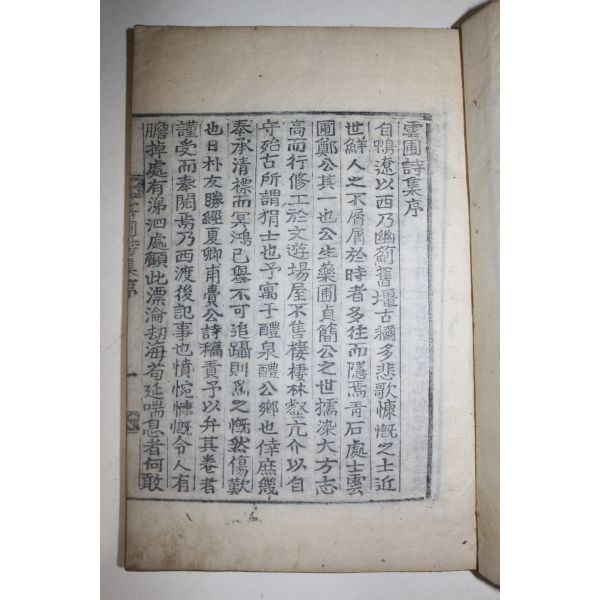 雲圃詩集序
自鴨遼以西乃幽薊舊壃古稱多悲歌慷慨之士近
世鮮人之不屑屑於時者多往而隱焉靑石處士雲
圃鄭公其一也公生藥圃貞簡公之世擩染大方志
高而行修工於文遊塲屋不售棲棲林壑亢介以自
守殆古所謂狷士也予寓于醴泉醴公鄕也倖庶幾
奉承清標而冥鴻已擧不可追躡則爲之慨然傷歎
也日朴友勝經夏卿甫賫公詩稿責予以弁其卷者
謹受而奉閱焉乃西渡後記事也憤惋慷慨令人有
膽掉處有涕泗處顧此漂淪劫海苟延喘息者何敢
雲圃詩集序
一